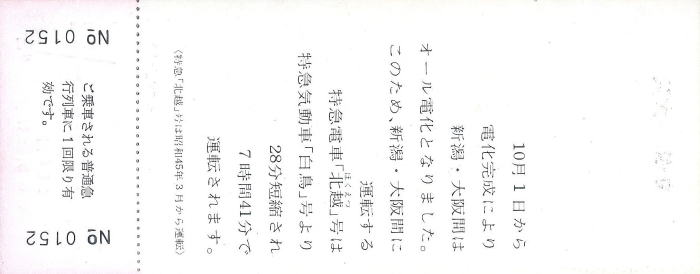 10月1日から
電化完成により
新潟・大阪間は
オール電化となりました。
このため、新潟・大阪間に
運転する
ほくえつ
特急電車「北越」号は
特急気動車「白鳥」号より
28分短縮され
7時間41分で
運転されます。
〈特急「北越」号は昭和45年3月から運転〉
№ 0152
ご乗車される普通急
行列車に1回限り有
効です。
№ 0152